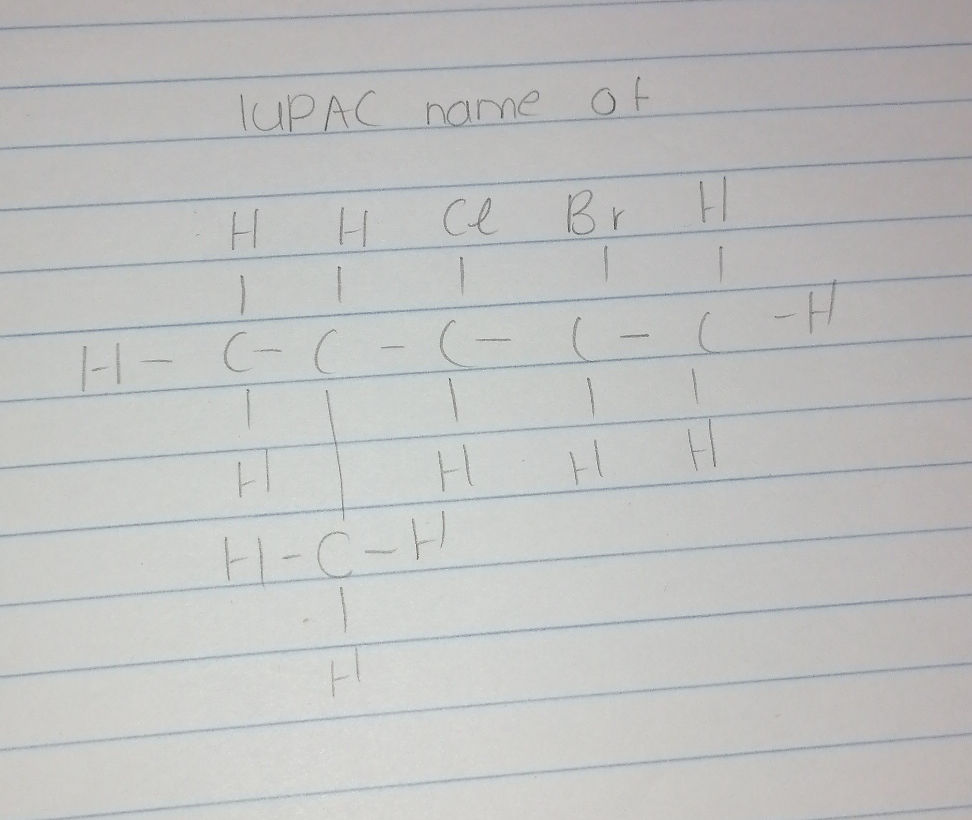 IUPAC name of
H H Cl Br H
| | | | |
H - C - C - C - C - C - H
| | | | |
H H H H
H - C - H
|
H